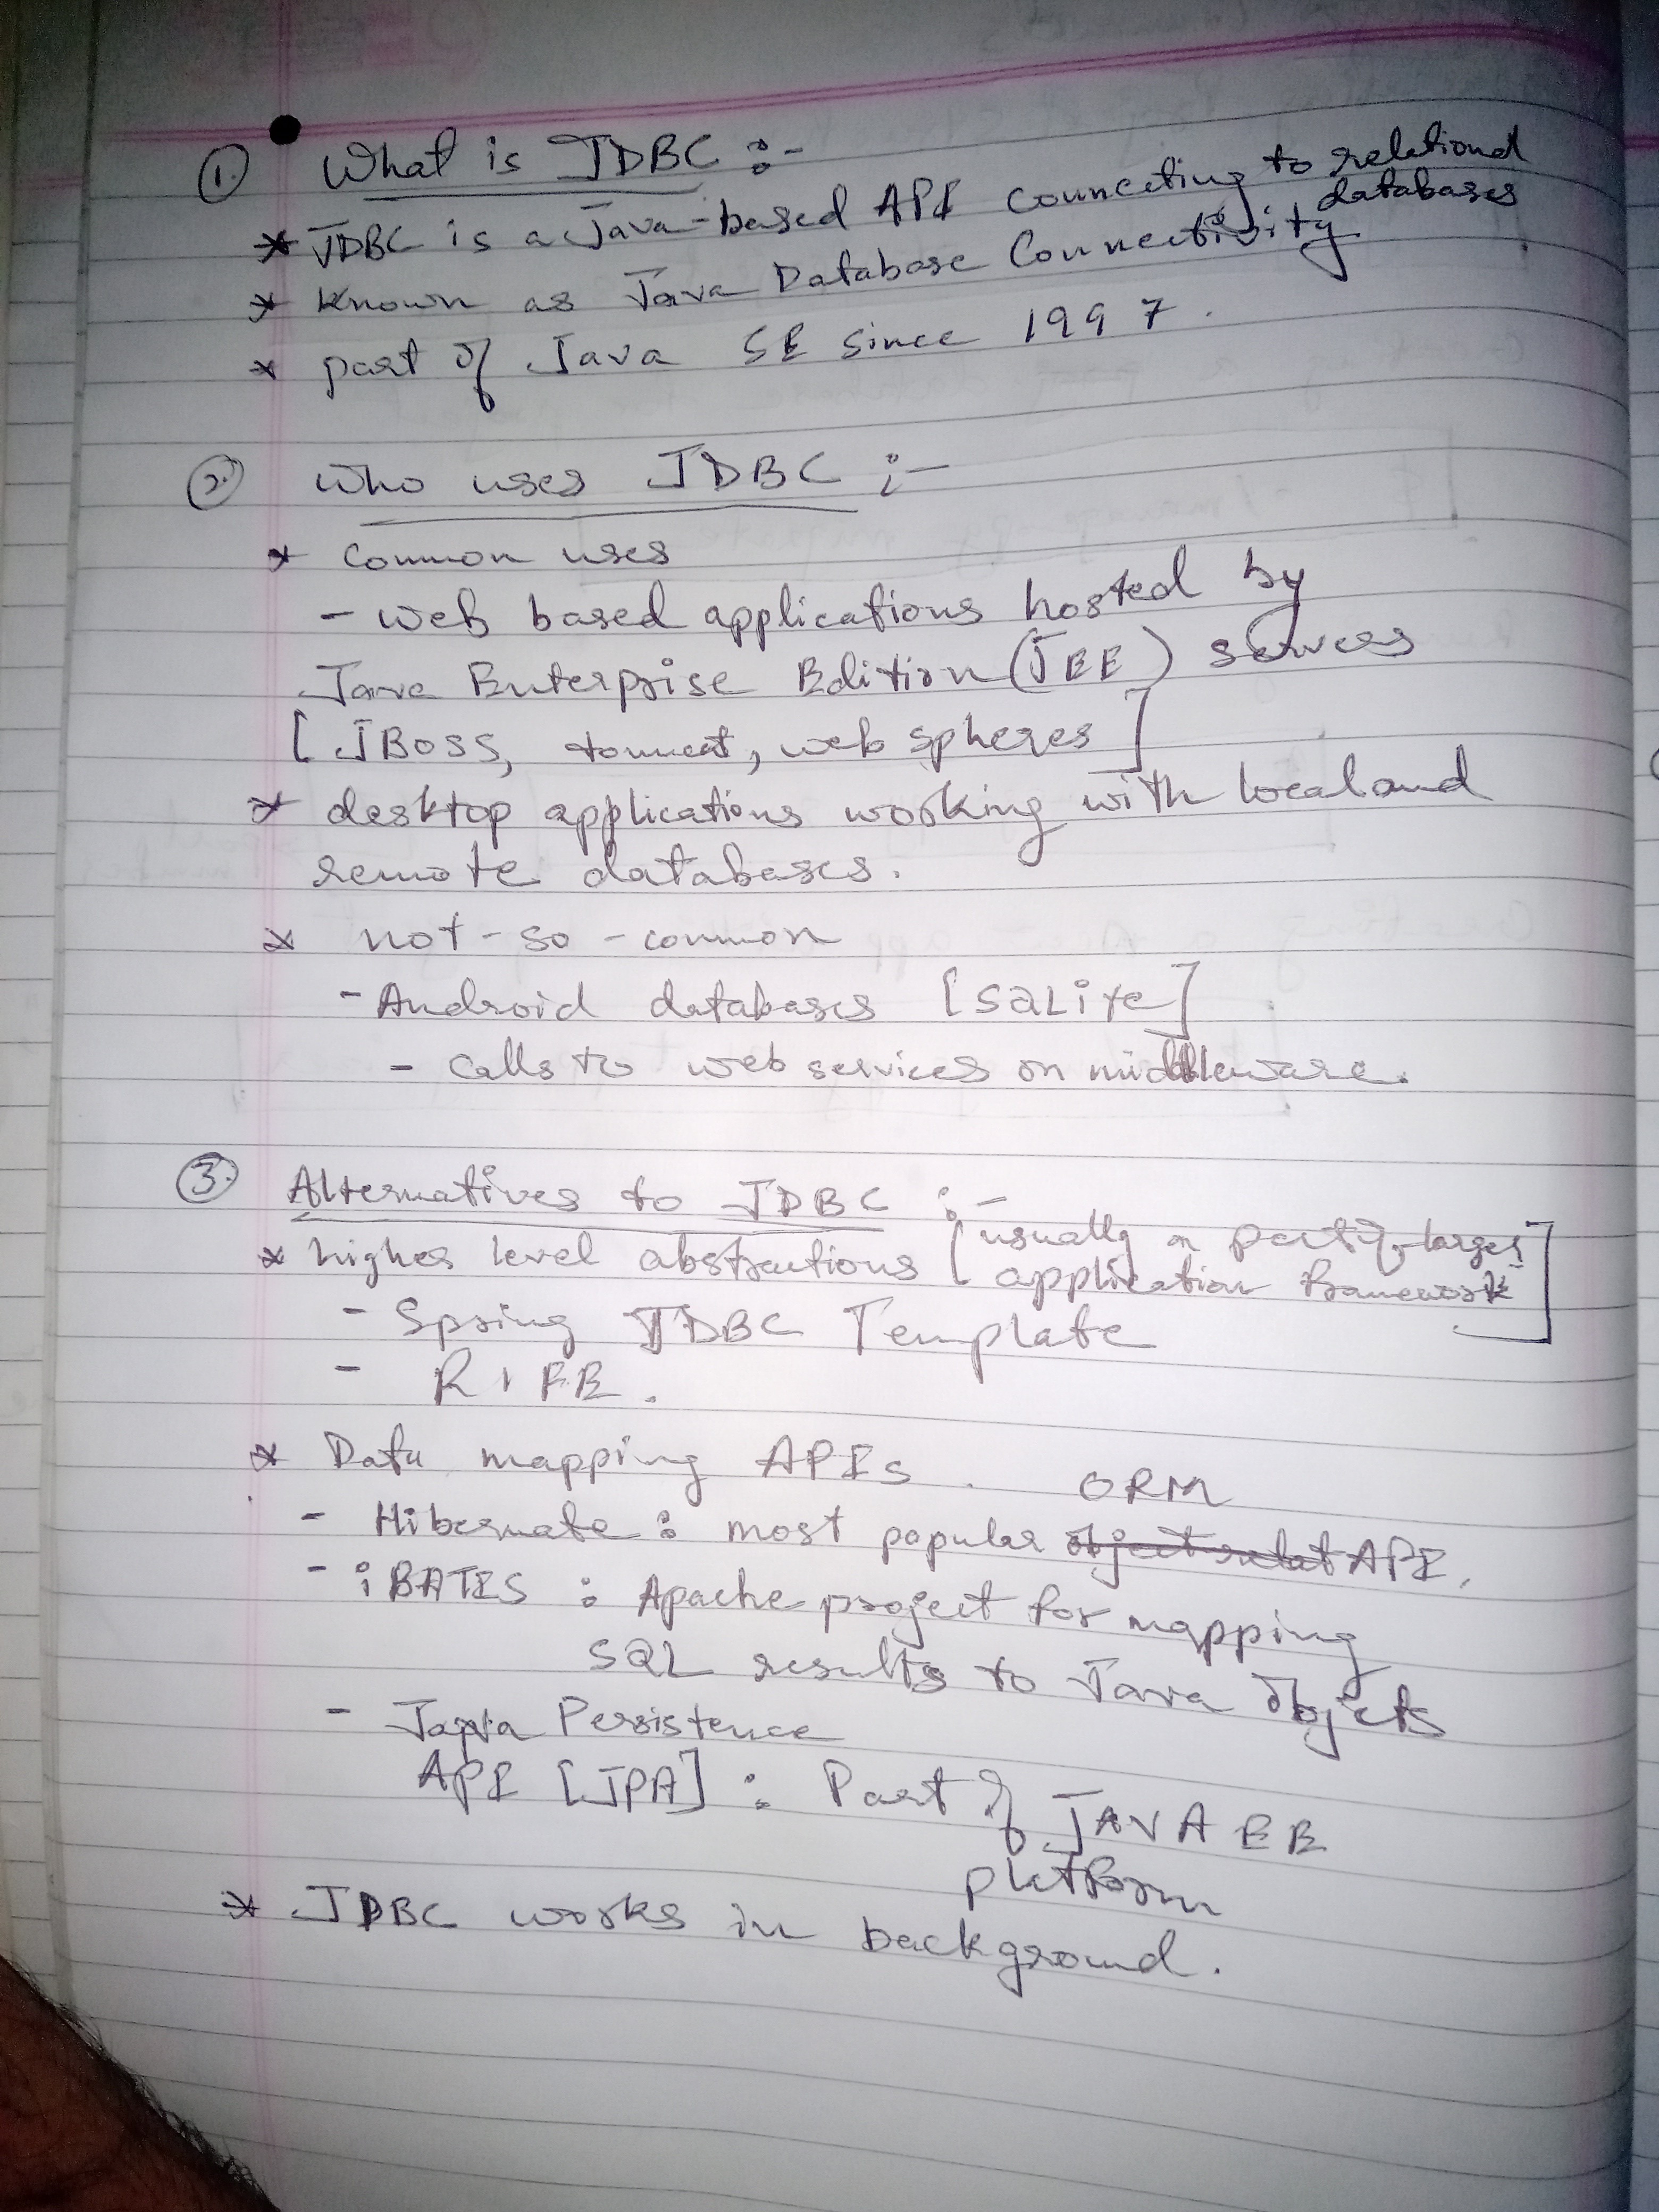 ① What is JDBC :-
* JDBC is a Java-based API connecting to relational databases
* Known as Java Database Connectivity.
* part of Java SE since 1997.
② Who uses JDBC :-
* Common uses
- Web based applications hosted by
Java Enterprise Edition (JEE) servers
[JBoss, tomcat, web spheres]
* desktop applications working with local and
remote databases.
* not-so-common
- Android databases [SQLite]
- Calls to web services on middleware.
③ Alternatives to JDBC :-
* higher level abstractions [usually part of larger
application framework]
- Spring JDBC Template
- RIFE.
* Data mapping APIs.
ORM
- Hibernate : most popular object relat API.
- iBATIS : Apache project for mapping
SQL results to Java Objects
- Java Persistence
API [JPA] : Part of JAVA EE
platform
* JDBC works in background.